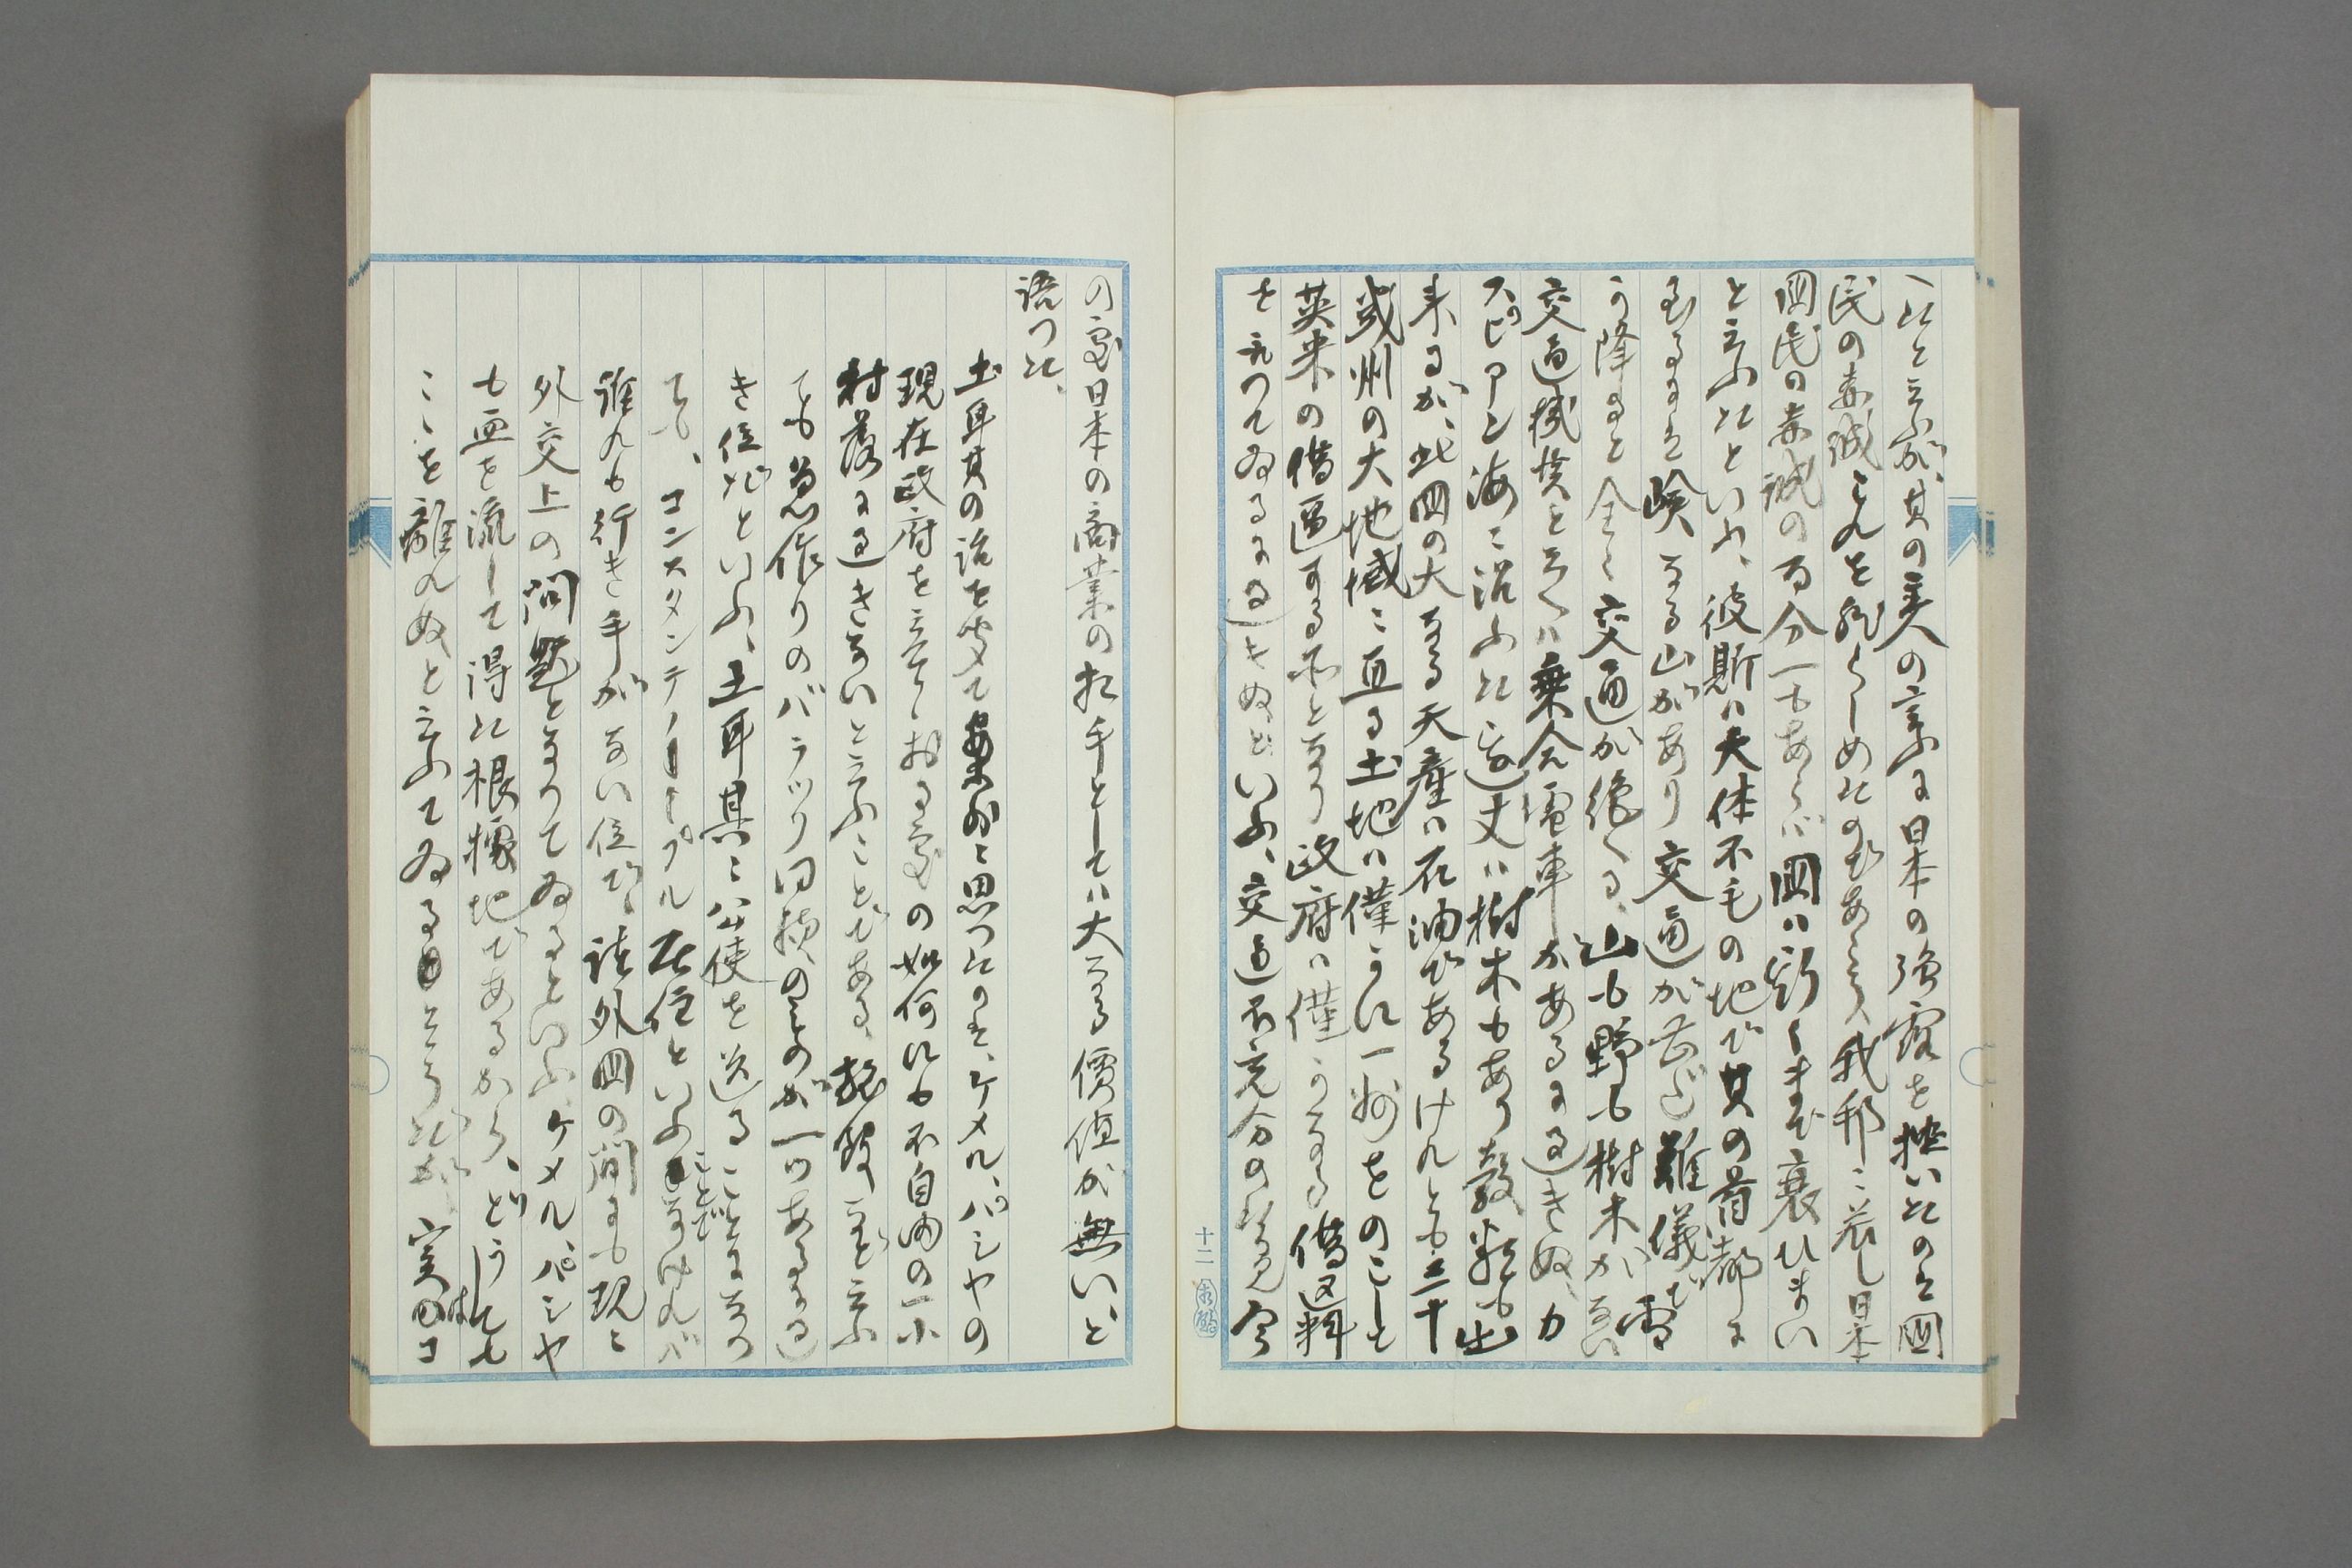 たと云ふが、其の軍人の言ふに日本の強露を挫いたのは国
民の赤誠これを然らしめたのであらう我邦に若し日本
国民の赤誠の百分一もあらバ国ハ斯くまで衰ひまい
と云ふたといふ、彼斯ハ大体不毛の地で其の首都に
至るには険なる山があり交通が甚だ難儀で雪
が降ると全く交通が絶へる、山も野も樹木がない
交通機関と云へハ乗合電車があるに過きぬ、カ
スピアン海に沿ふた辺丈ハ樹木もあり穀類も出
来るが、此国の大なる天産ハ石油であるけれとも三十
幾州の大地域に亘る土地ハ僅かに一州をのこして
英米の借區する所となり政府ハ僅かなる借区料
を取つてゐるに過きぬといふ、交通不充分の為免
の家日本の商業の相手としてハ大なる價値が無い、と
語つた、
土耳其の話を聞て案外に思つたのは、ケメル、パシヤの
現在政府を立てゝおる家の如何にも不自由の一小
村落に過きないと云ふことである、旅館など云ふ
ても急作りのバラツク同様のものが一つあるに過
き位だといふ、土耳其に公使を送ることになつ
ても、コンスタンチノープル在住といふことでなけれバ
誰れも行き手がない位で、諸外国の間にも現に
外交上の問題となつてゐるといふ、ケメル、パシヤ
も血を流して得た根據地であるから、どうしても
こゝを離れぬと云ふてゐるとさうだが、実はコ
十二